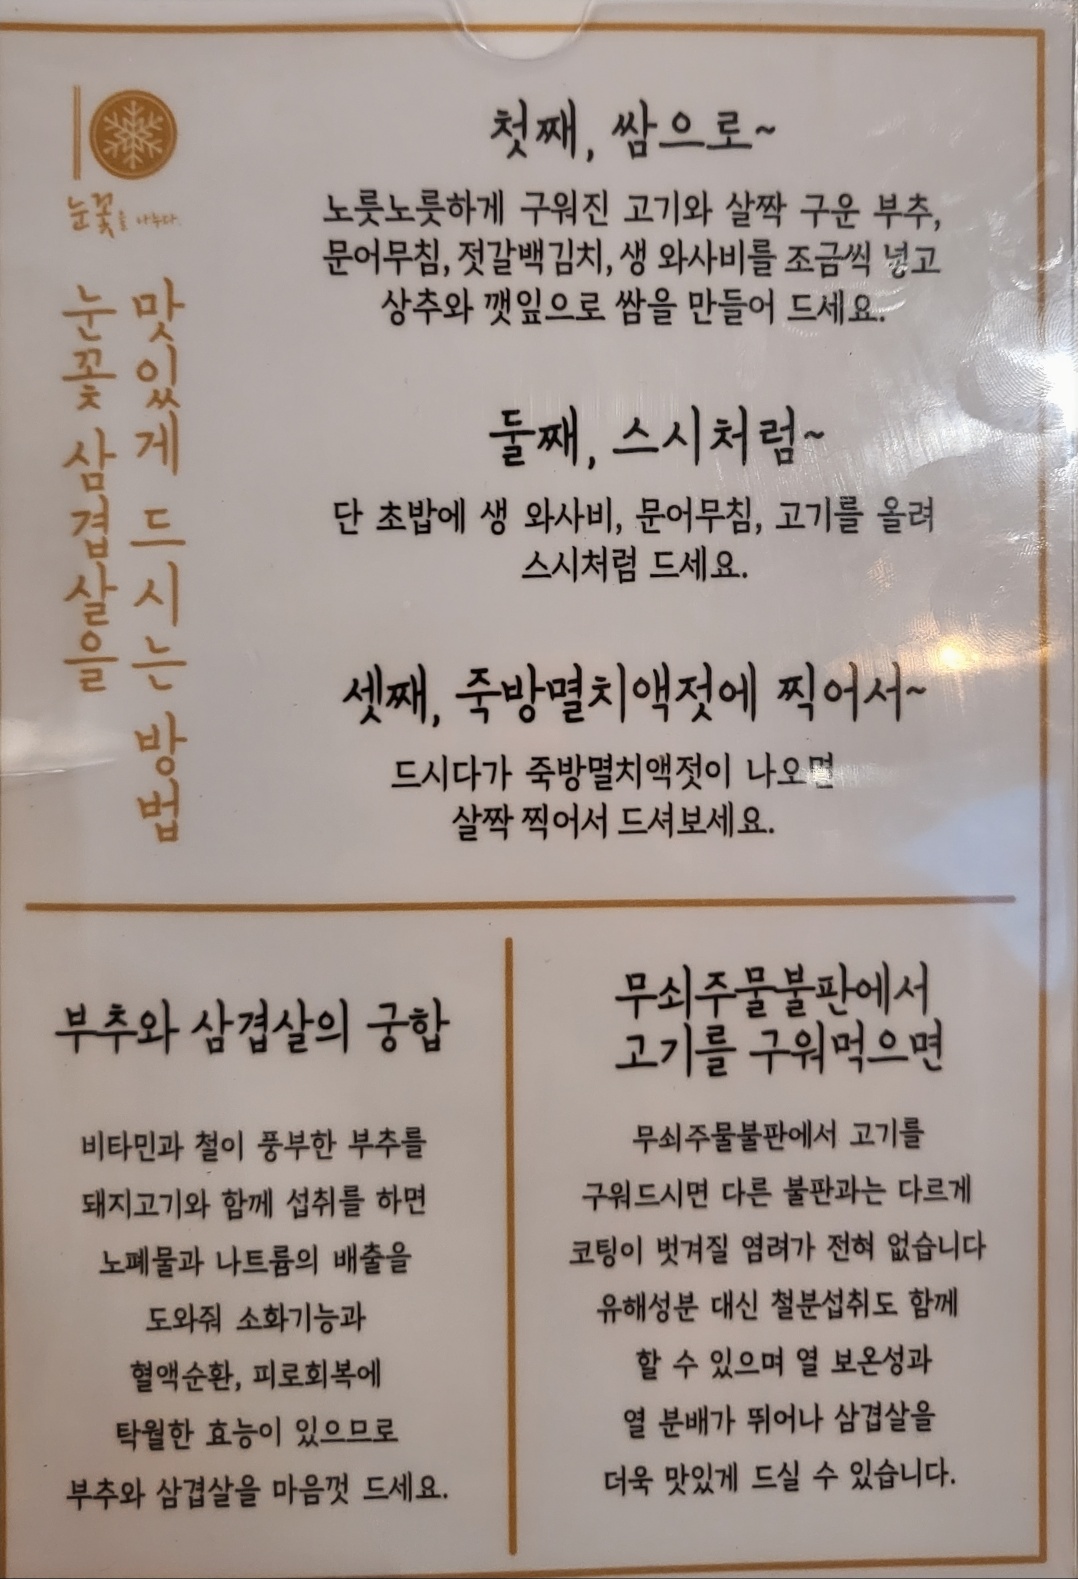 눈꽃을 나누다.
눈꽃 삼겹살을
맛있게 드시는 방법
첫째, 쌈으로~
노릇노릇하게 구워진 고기와 살짝 구운 부추,
문어무침, 젓갈백김치, 생 와사비를 조금씩 넣고
상추와 깻잎으로 쌈을 만들어 드세요.
둘째, 스시처럼~
단 초밥에 생 와사비, 문어무침, 고기를 올려
스시처럼 드세요.
셋째, 죽방멸치액젓에 찍어서~
드시다가 죽방멸치액젓이 나오면
살짝 찍어서 드셔보세요.
부추와 삼겹살의 궁합
비타민과 철이 풍부한 부추를
돼지고기와 함께 섭취를 하면
노폐물과 나트륨의 배출을
도와줘 소화기능과
혈액순환, 피로회복에
탁월한 효능이 있으므로
부추와 삼겹살을 마음껏 드세요.
무쇠주물불판에서
고기를 구워먹으면
무쇠주물불판에서 고기를
구워드시면 다른 불판과는 다르게
코팅이 벗겨질 염려가 전혀 없습니다
유해성분 대신 철분섭취도 함께
할 수 있으며 열 보온성과
열 분배가 뛰어나 삼겹살을
더욱 맛있게 드실 수 있습니다.